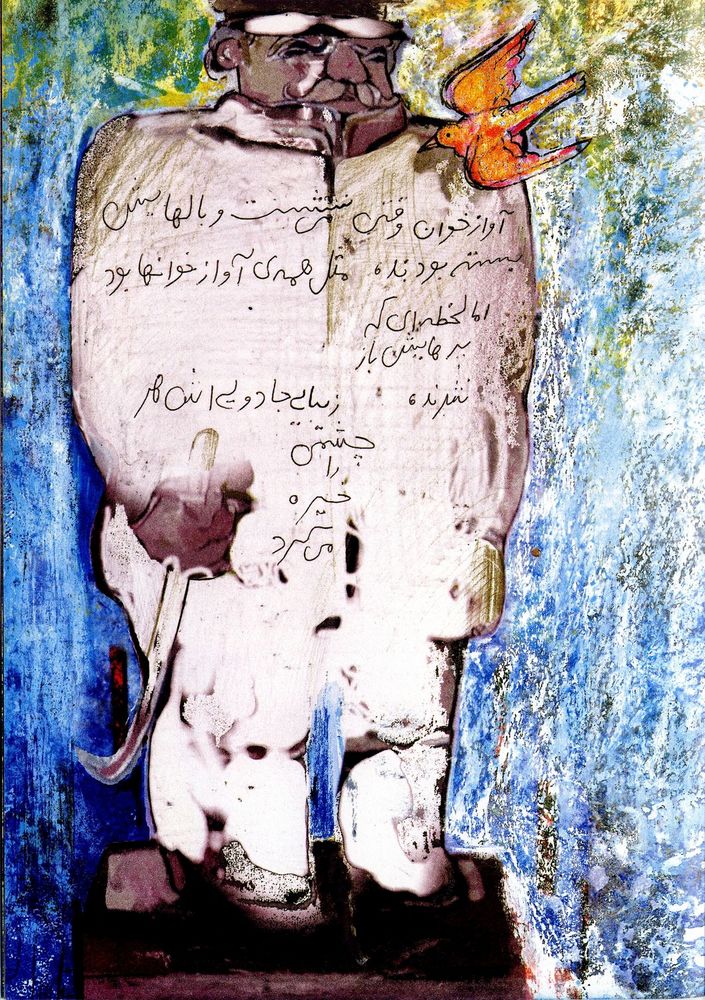 آوازخوان وقتی می‌نشست و بالهایش
بسته بودند مثل همه‌ی آوازخوانها بود
اما لحظه‌ای که
پرهایش باز
شدند زیبایی جادویی‌اش هر
چشمی
را
خیره
می‌کرد